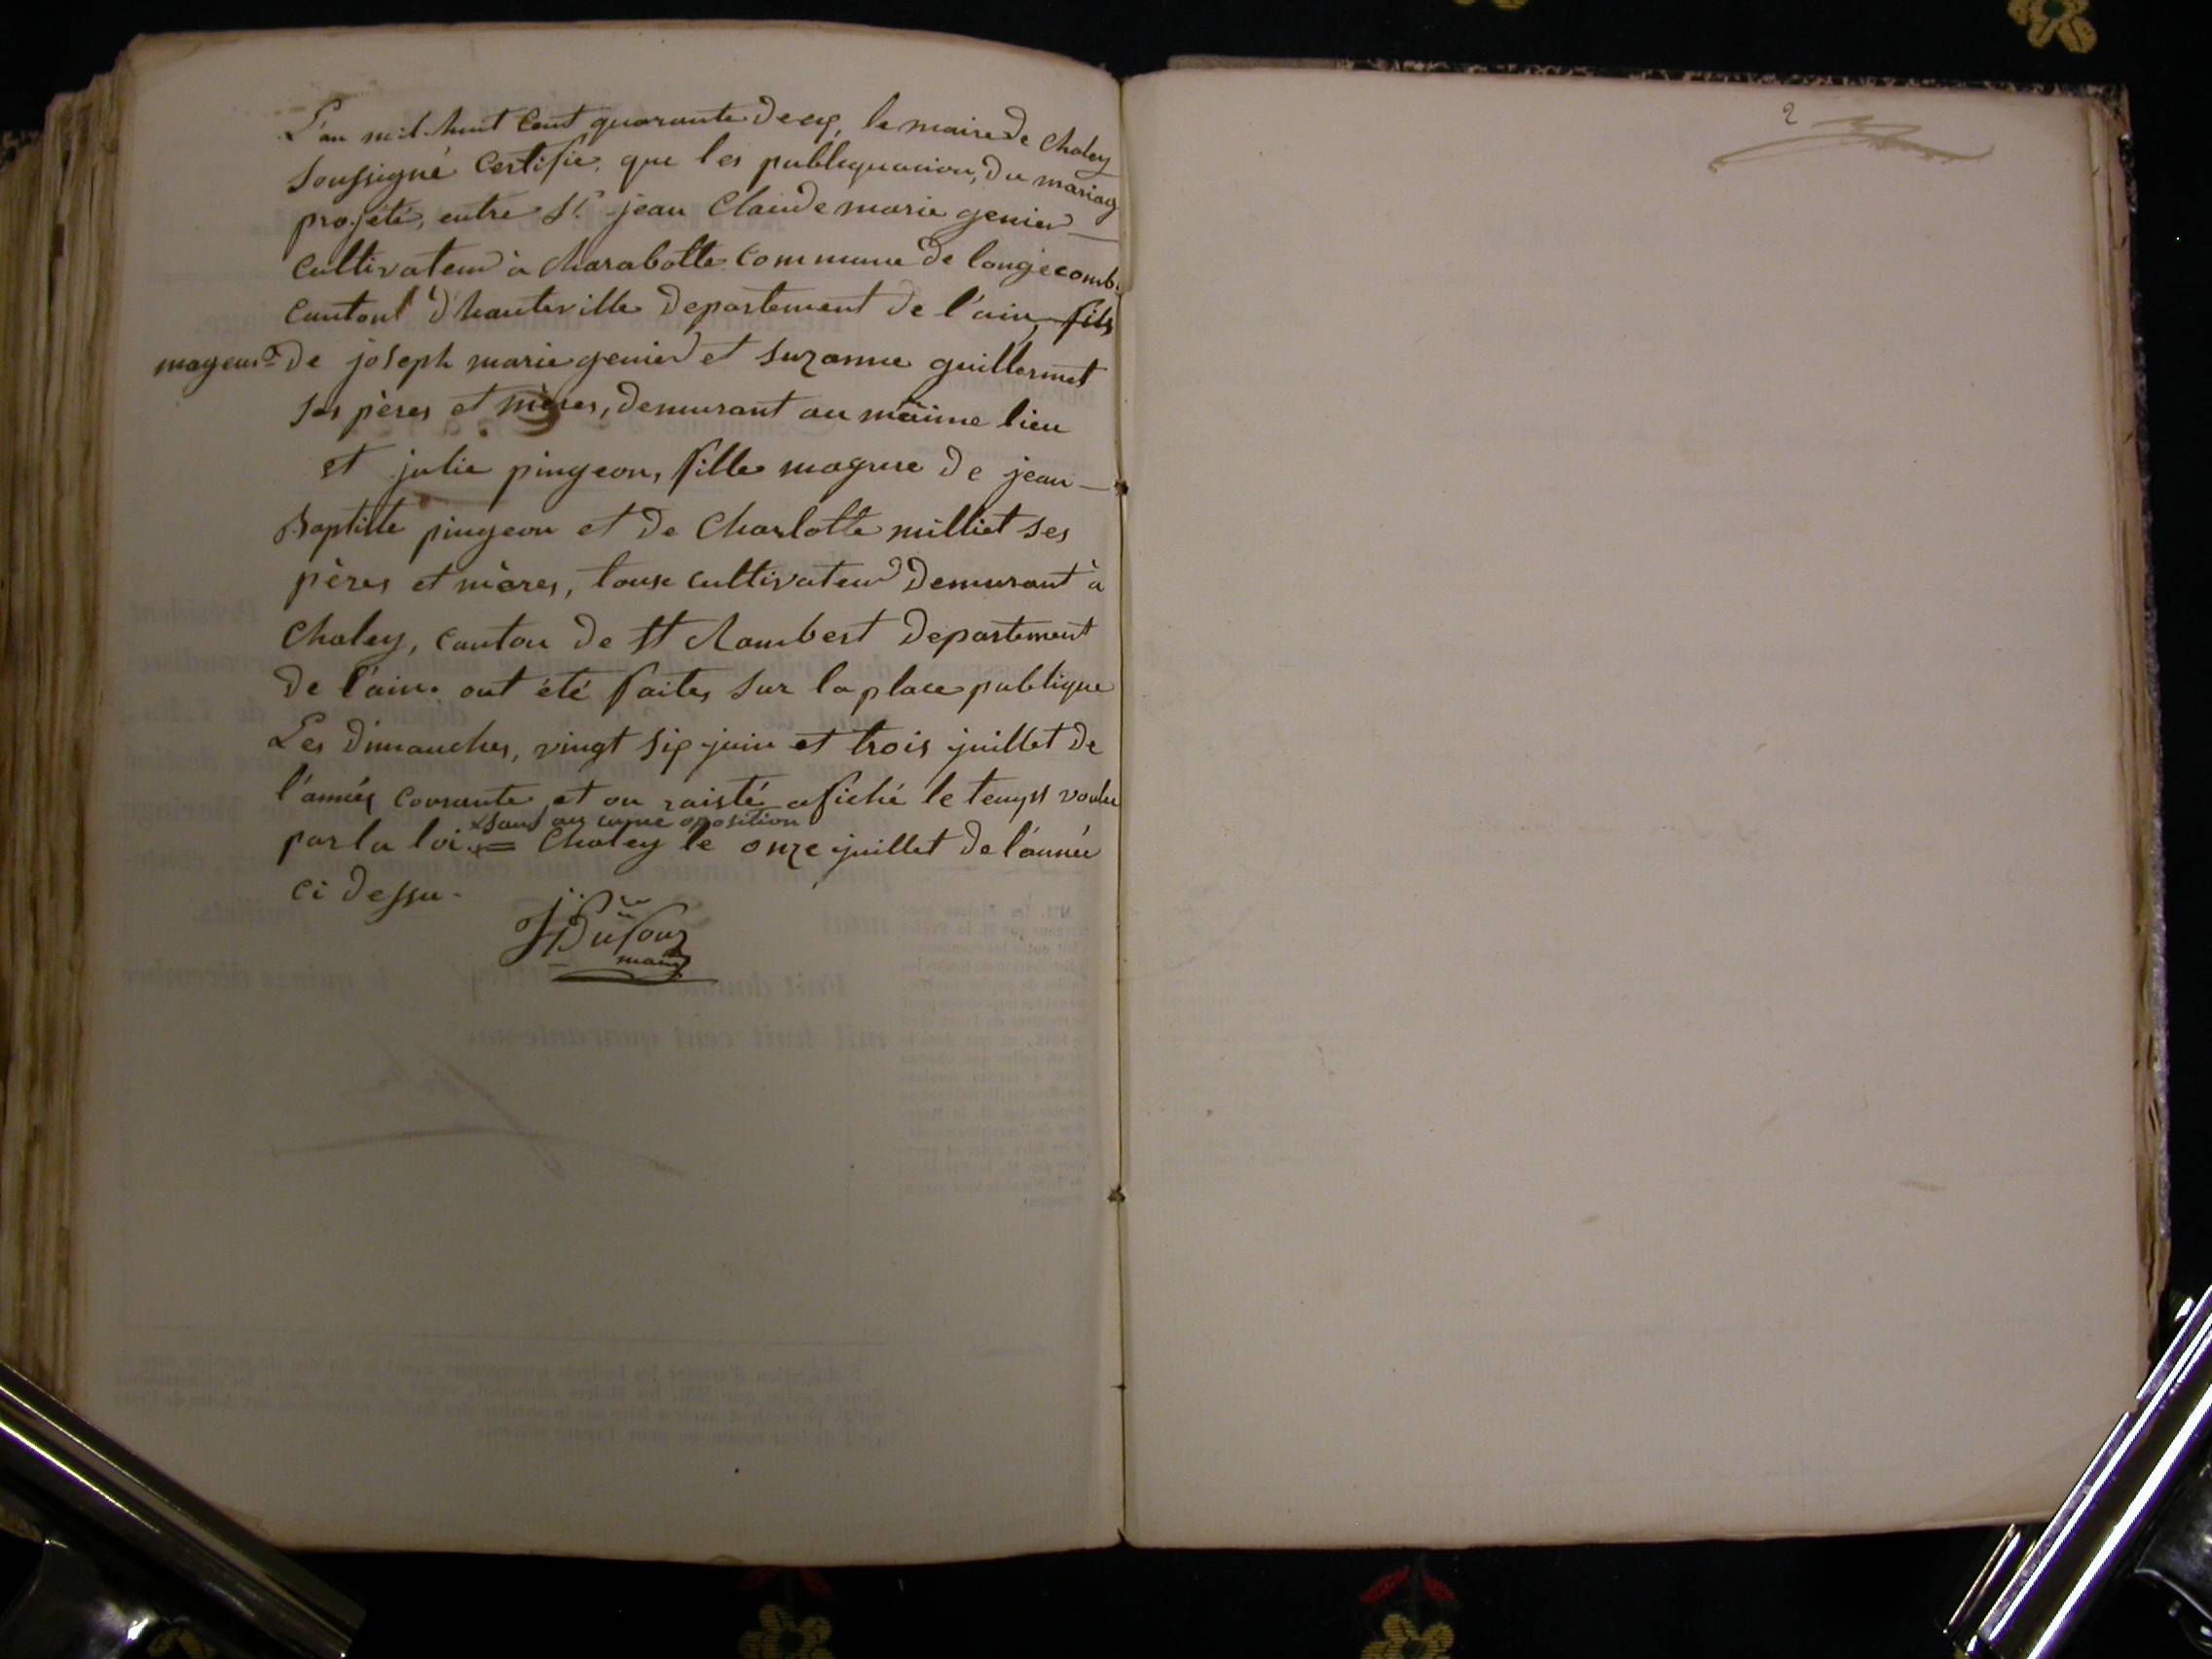 L'an mil huit Cent quarante deux, le maire de Chaley
Soussigné Certifie, que les publiquacion, du mariag
projété, entre Sr. jean Claude marie genier
Cultivateur à Charabotte Commune de longecomb.
Cantont d'hauteville Departement de l'ain, fils
mageur = de joseph marie genier et Suzanne guillermet
Ses pères et mères, demurant au mäime lieu
et julie pingeon, fille magure de jean
Baptiste pingeon et de Charlotte milliet ses
pères et mères, touse cultivateur Demurant à
Chaley, Canton de St Rambert Departement
de l'ain. ont été faites Sur la place publique
Les Dimanches, vingt Six juin et trois juillet de
l'année Courante et on raisté afiché le temps voulu
x sans au cunne oposition
par la loi. x = Chaley le onze juillet de l'année
ci dessu.
Dufour
maire
2